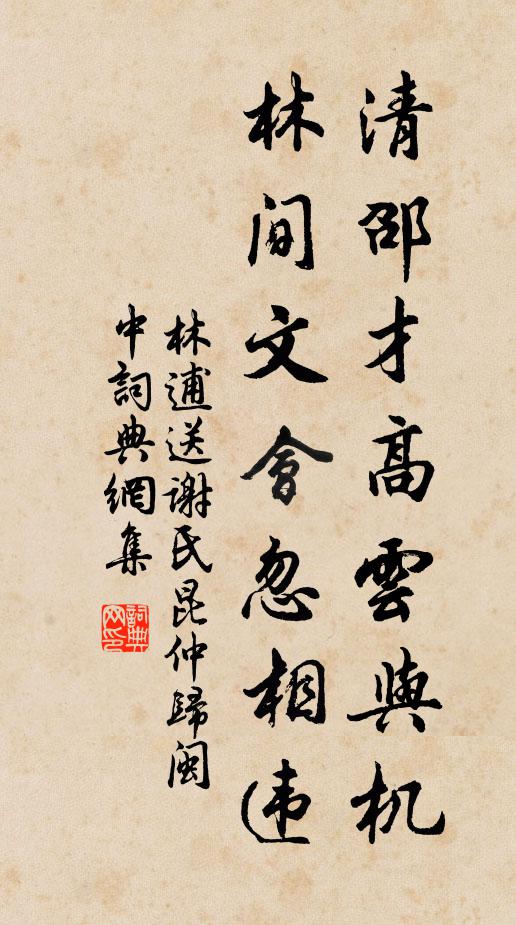 清邵才高雲與机
林间文會忽相违
林逋送謝氏昆仲歸闽
中詞典網集
詞典网印